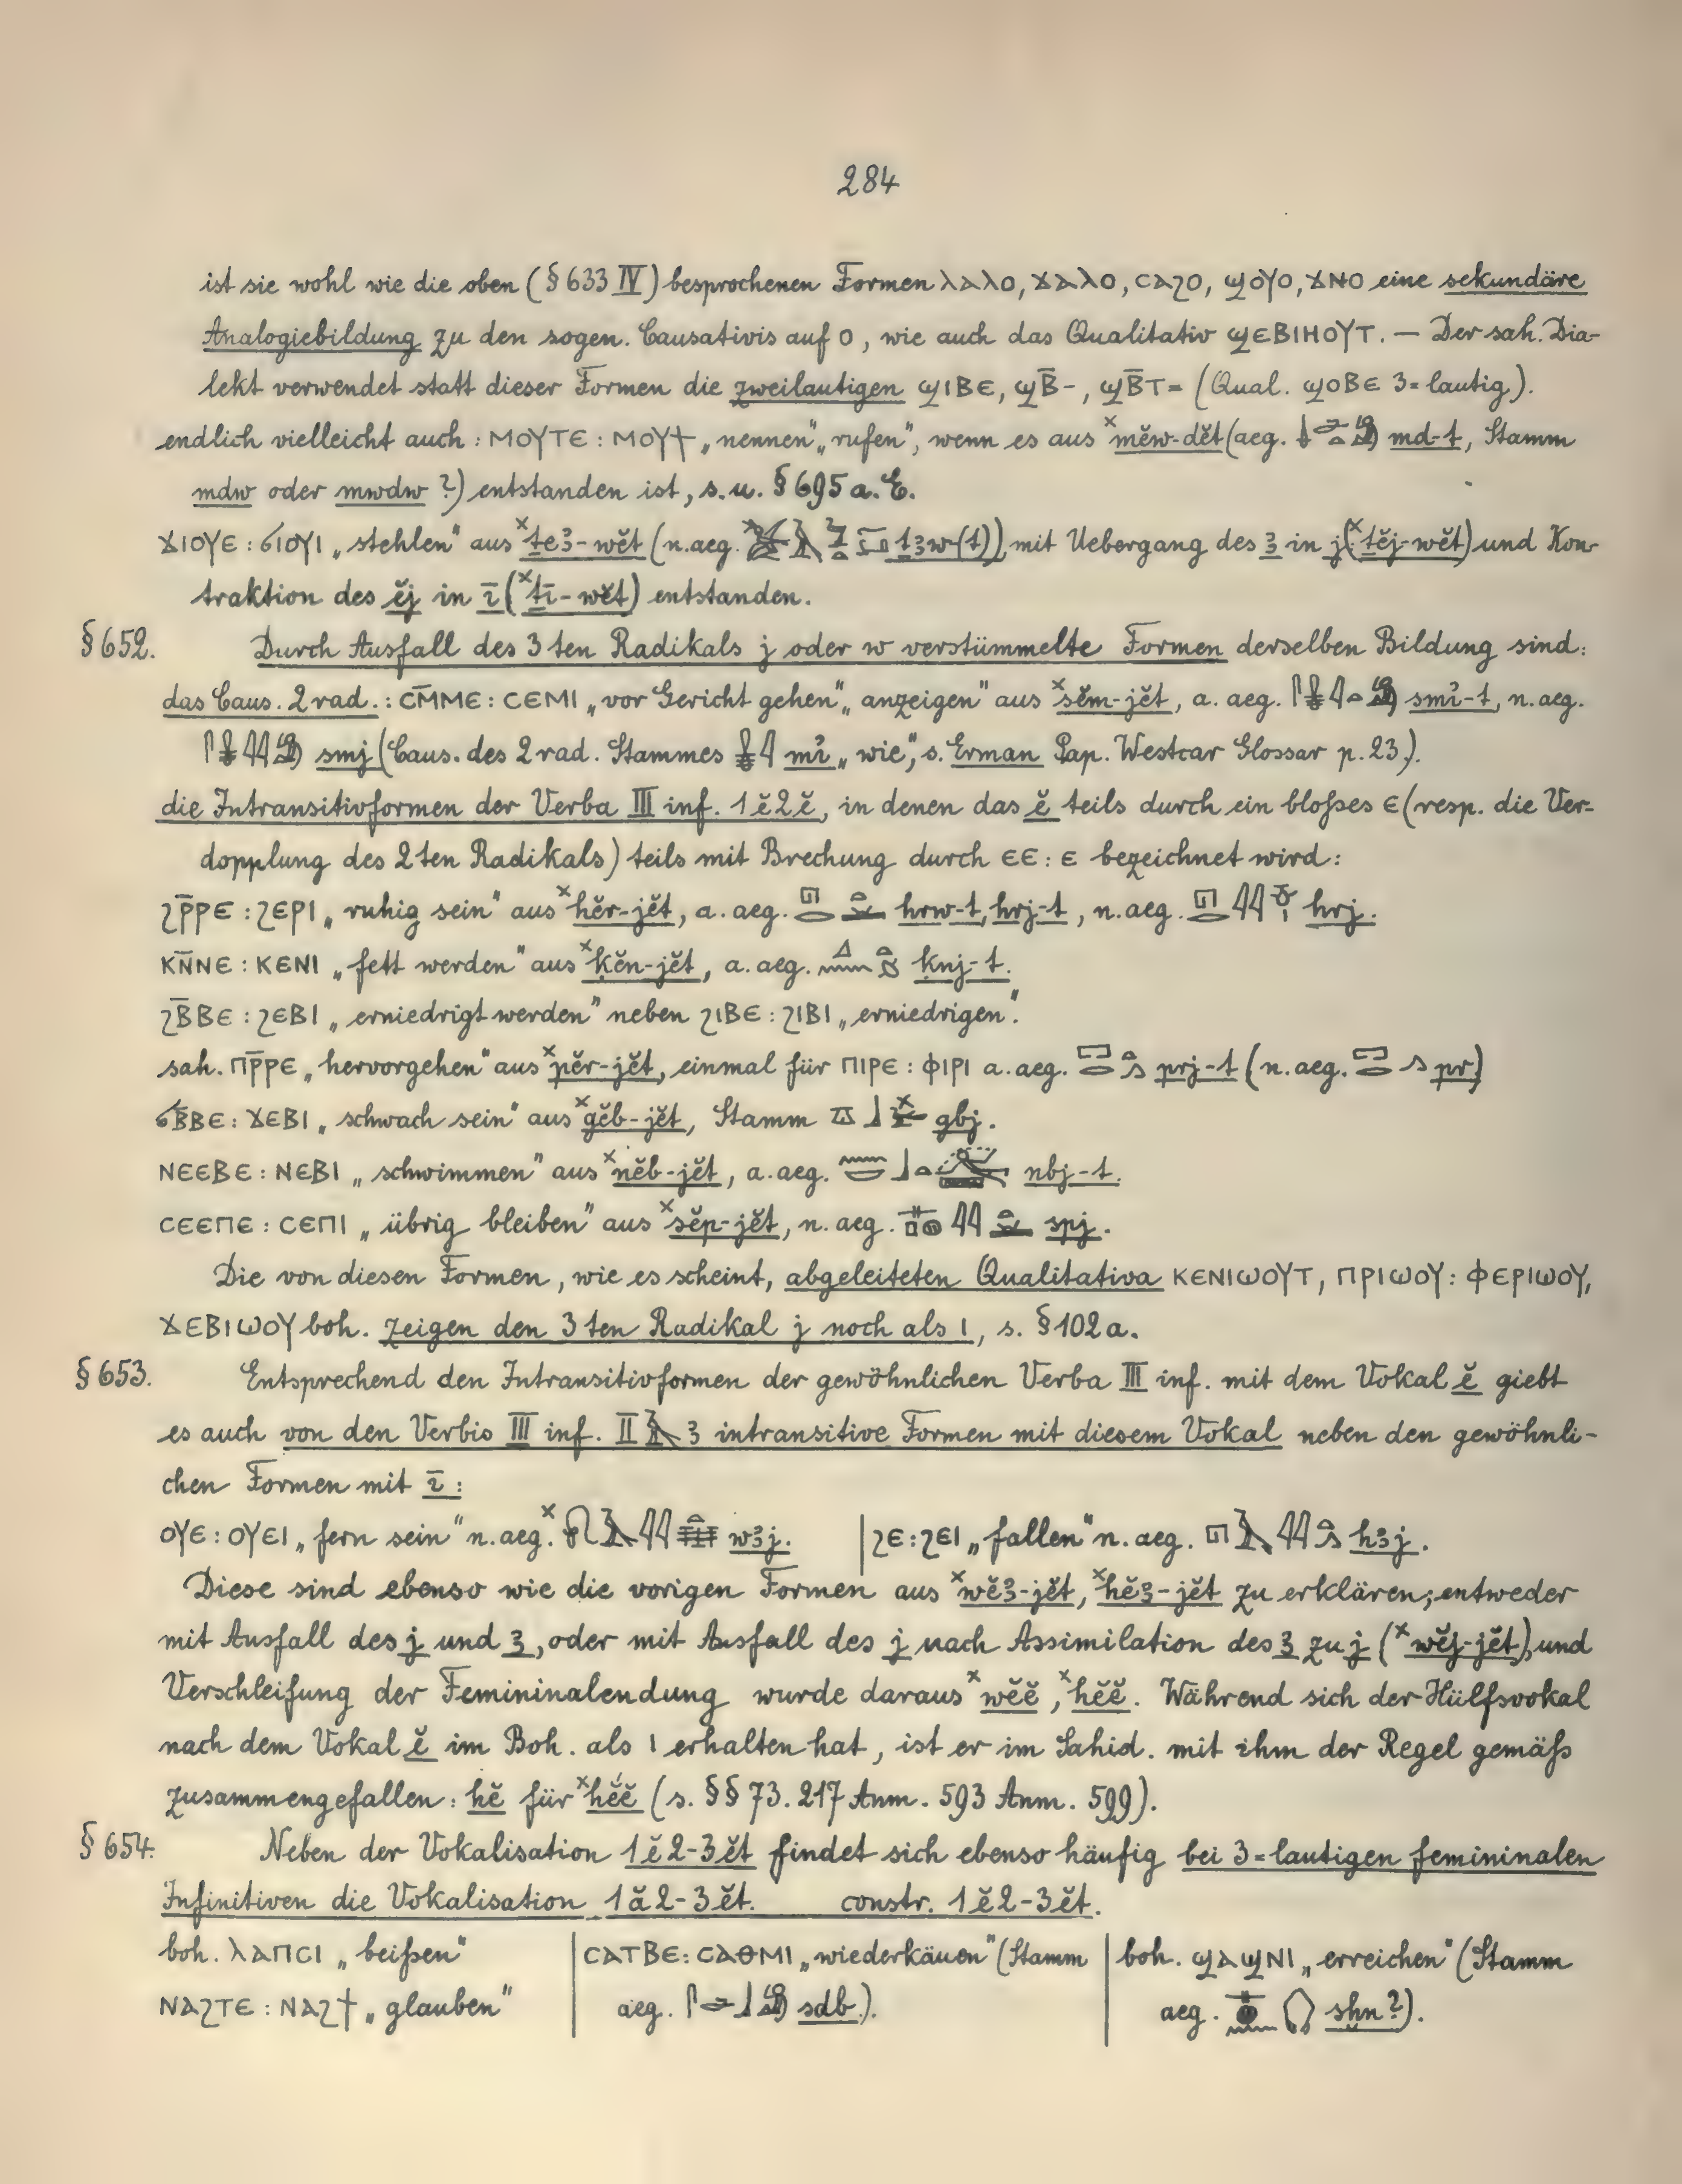 284
ist sie wohl wie die oben (§ 633 IV) besprochenen Formen ⲗⲁⲗⲟ, ϫⲁⲗⲟ, ⲥⲁϩⲟ, ϣⲟⲩⲟ, ϫⲛⲟ eine sekundäre
Analogiebildung zu den sogen. Causativis auf ⲟ, wie auch das Qualitativ ϣⲉⲃⲓⲏⲟⲩⲧ. — Der sah. Dia-
lekt verwendet statt dieser Formen die zweilautigen ϣⲓⲃⲉ, ϣⲃ̄-, ϣⲃ̄ⲧ= (Qual. ϣⲟⲃⲉ 3=lautig).
endlich vielleicht auch: ⲙⲟⲩⲧⲉ : ⲙⲟⲩϯ „nennen" „rufen", wenn es aus ˣmĕw-dĕt (aeg. md-t, Stamm
mdw oder mwdw ?) entstanden ist, s. u. § 695 a. E.
ϫⲓⲟⲩⲉ : ϭⲓⲟⲩⲓ „stehlen" aus ˣṯeꜣ-wĕt (n. aeg. ṯꜣw(t)), mit Uebergang des ꜣ in j (ˣṯĕj-wĕt) und Kon-
traktion des ĕj in ī (ˣṯī-wĕt) entstanden.
§ 652. Durch Ausfall des 3ten Radikals j oder w verstümmelte Formen derselben Bildung sind:
das Caus. 2 rad.: ⲥⲙ̄ⲙⲉ : ⲥⲉⲙⲓ „vor Gericht gehen" „anzeigen" aus ˣsĕm-jĕt, a. aeg. smı͗-t, n. aeg.
smj (Caus. des 2 rad. Stammes mı͗ „wie", s. Erman Pap. Westcar Glossar p. 23.).
die Intransitivformen der Verba III inf. 1ĕ2ĕ, in denen das ĕ teils durch ein bloßes ⲉ (resp. die Ver-
dopplung des 2ten Radikals) teils mit Brechung durch ⲉⲉ : ⲉ bezeichnet wird:
ϩⲣ̄ⲣⲉ : ϩⲉⲣⲓ „ruhig sein" aus ˣhĕr-jĕt, a. aeg. hrw-t, hrj-t, n. aeg. hrj.
ⲕⲛ̄ⲛⲉ : ⲕⲉⲛⲓ „fett werden" aus ˣḳĕn-jĕt, a. aeg. ḳnj-t.
ϩⲃ̄ⲃⲉ : ϩⲉⲃⲓ „erniedrigt werden" neben ϩⲓⲃⲉ : ϩⲓⲃⲓ „erniedrigen".
sah. ⲡⲣ̄ⲣⲉ „hervorgehen" aus ˣpĕr-jĕt, einmal für ⲡⲓⲣⲉ : ⲫⲓⲣⲓ a. aeg. prj-t (n. aeg. pr)
ϭⲃ̄ⲃⲉ : ϫⲉⲃⲓ „schwach sein" aus ˣgĕb-jĕt, Stamm gbj.
ⲛⲉⲉⲃⲉ : ⲛⲉⲃⲓ „schwimmen" aus ˣnĕb-jĕt, a. aeg. nbj-t.
ⲥⲉⲉⲡⲉ : ⲥⲉⲡⲓ „übrig bleiben" aus ˣsĕp-jĕt, n. aeg. spj.
Die von diesen Formen, wie es scheint, abgeleiteten Qualitativa ⲕⲉⲛⲓⲱⲟⲩⲧ, ⲡⲣⲓⲱⲟⲩ : ⲫⲉⲣⲓⲱⲟⲩ,
ϫⲉⲃⲓⲱⲟⲩ boh. zeigen den 3ten Radikal j noch als ⲓ, s. § 102a.
§ 653. Entsprechend den Intransitivformen der gewöhnlichen Verba III inf. mit dem Vokal ĕ giebt
es auch von den Verbis III inf. II ꜣ intransitive Formen mit diesem Vokal neben den gewöhnli-
chen Formen mit ī:
ⲟⲩⲉ : ⲟⲩⲉⲓ „fern sein" n. aeg. ˣ wꜣj. | ϩⲉ : ϩⲉⲓ „fallen" n. aeg. hꜣj.
Diese sind ebenso wie die vorigen Formen aus ˣwĕꜣ-jĕt, ˣhĕꜣ-jĕt zu erklären; entweder
mit Ausfall des j und ꜣ, oder mit Ausfall des j nach Assimilation des ꜣ zu j (ˣwĕj-jĕt) und
Verschleifung der Femininalendung wurde daraus ˣwĕĕ, ˣhĕĕ. Während sich der Hülfsvokal
nach dem Vokal ĕ im Boh. als ⲓ erhalten hat, ist er im Sahid. mit ihm der Regel gemäß
zusammengefallen: hĕ für ˣhĕ́ĕ (s. §§ 73. 217 Anm. 593 Anm. 599).
§ 654. Neben der Vokalisation 1ĕ2-3ĕt findet sich ebenso häufig bei 3=lautigen femininalen
Infinitiven die Vokalisation 1ă2-3ĕt. constr. 1ĕ2-3ĕt.
boh. ⲗⲁⲡⲥⲓ „beißen" | ⲥⲁⲧⲃⲉ : ⲥⲁⲑⲙⲓ „wiederkäuen" (Stamm | boh. ϣⲁϣⲛⲓ „erreichen" (Stamm
ⲛⲁϩⲧⲉ : ⲛⲁϩϯ „glauben" | aeg. sdb.). | aeg. sḫn ?).